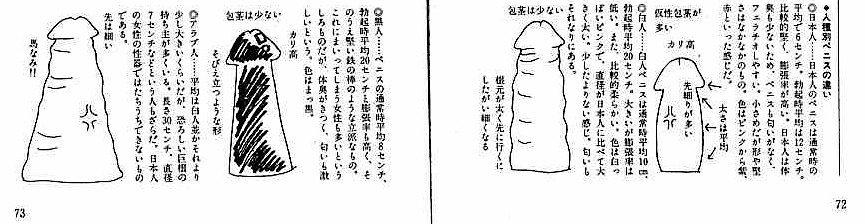 ◆人種別ペニスの違い
◎日本人……日本人のペニスは通常時の
平均で8センチ。勃起時平均は12センチ。
比較的堅く、膨張率が高い。日本人は体
臭も少ないため、ペニスも匂いがなく、
フェラチオしやすい。小さめだが形や堅
さはなかなかのもの。色はピンクから紫、
赤といった感じだ。
仮性包茎が
多い
カリ高
先細りが多い
太さは平均
◎白人……白人ペニスは通常時平均10cm、
勃起時平均20センチ。大きいが膨張率は
低い。また、比較的柔らかい。色は白っ
ぽいピンクで、直径が日本人に比べて大
きく太い。少したよりない感じ。匂いも
それなりにある。
包茎は少ない
根元が太く先に行くに
したがい細くなる
72
◎黒人……ペニスの通常時平均8センチ、
勃起時平均20センチと膨張率も高く、そ
のうえ堅い鉄の棒のような立派なもの。
これにまいってしまう女性も多いという
しろものだが、体臭がきつく、匂いも激
しいという。色はまっ黒。
包茎は少ない
カリ高
そびえ立つような形
◎アラブ人……平均は白人並かそれより
少し大きいくらいだが、恐ろしい巨根の
持ち主が多くいる。長さ30センチ、直径
7センチなどという人もざらだ。日本人
の女性の性器ではたちうちできないもの
である。
先は細い
馬なみ!!
73